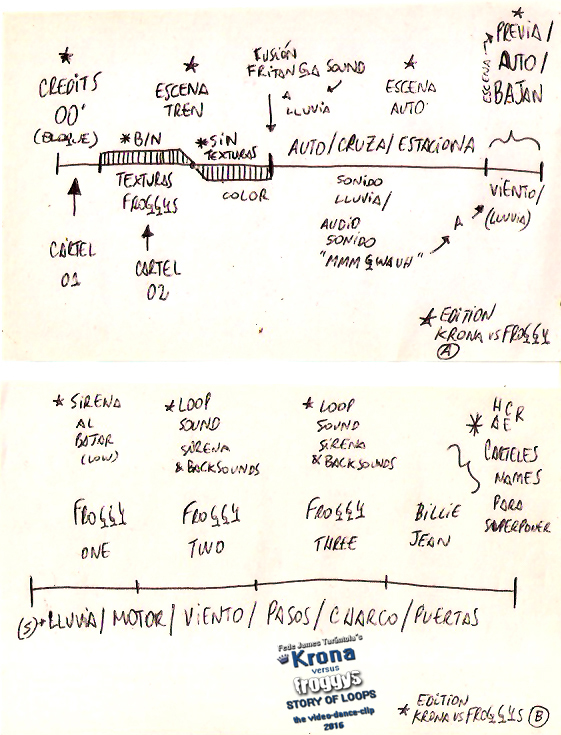 * CREDITS
00'
(BLOQUE)
* ESCENA
TREN
FUSIÓN
FRITANGA SOUND
A
LLUVIA
* ESCENA
AUTO
* PREVIA/
AUTO/
BAJAN
ESCENA
* B/N
* SIN
TEXTURAS
AUTO/CRUZA/ESTACIONA
TEXTURAS
FROGGYS
COLOR
CARTEL
01
CARTEL
02
SONIDO
LLUVIA/
AUDIO
SONIDO
"MMM GWAUH"
A
VIENTO/
(LLUVIA)
* EDITION
KRONA VS FROGGY
A
* SIRENA
AL
BAJAR
(LOW)
* LOOP
SOUND
SIRENA
& BACKSOUNDS
* LOOP
SOUND
SIRENA
& BACKSOUNDS
HCR
* AE
CARTELES
NAMES
PARA
SUPERPONER
FROGGY
ONE
FROGGY
TWO
FROGGY
THREE
BILLIE
JEAN
(S) LLUVIA/MOTOR/VIENTO/PASOS/CHARCO/PUERTAS
Fede James Turántula's
Krona
versus
froggys
STORY OF LOOPS
the video-dance-clip
2016
* EDITION
KRONA VS FROGGYS B